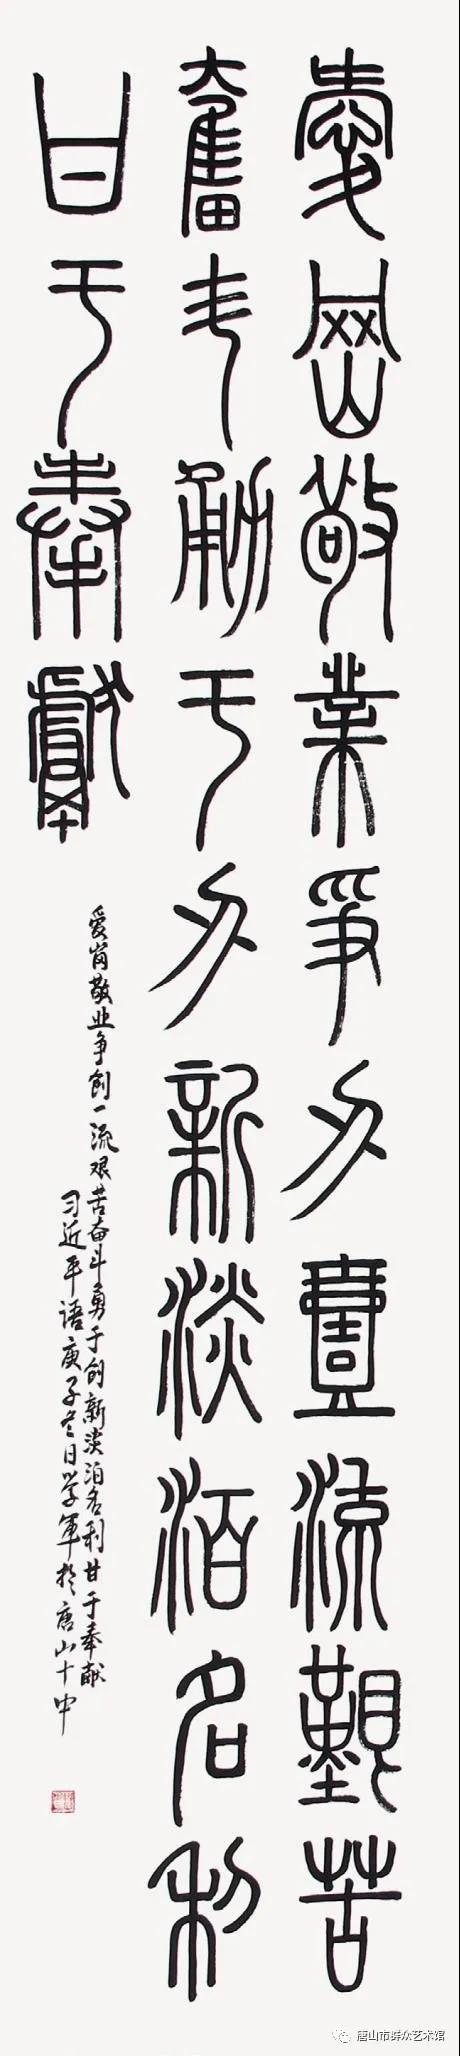 爱岗敬业争创壹流艰苦
奋斗勇于创新淡泊名利
甘于奉献
爱岗敬业争创一流艰苦奋斗勇于创新淡泊名利甘于奉献
习近平语庚子冬日学军于唐山十中
唐山市群众艺术馆